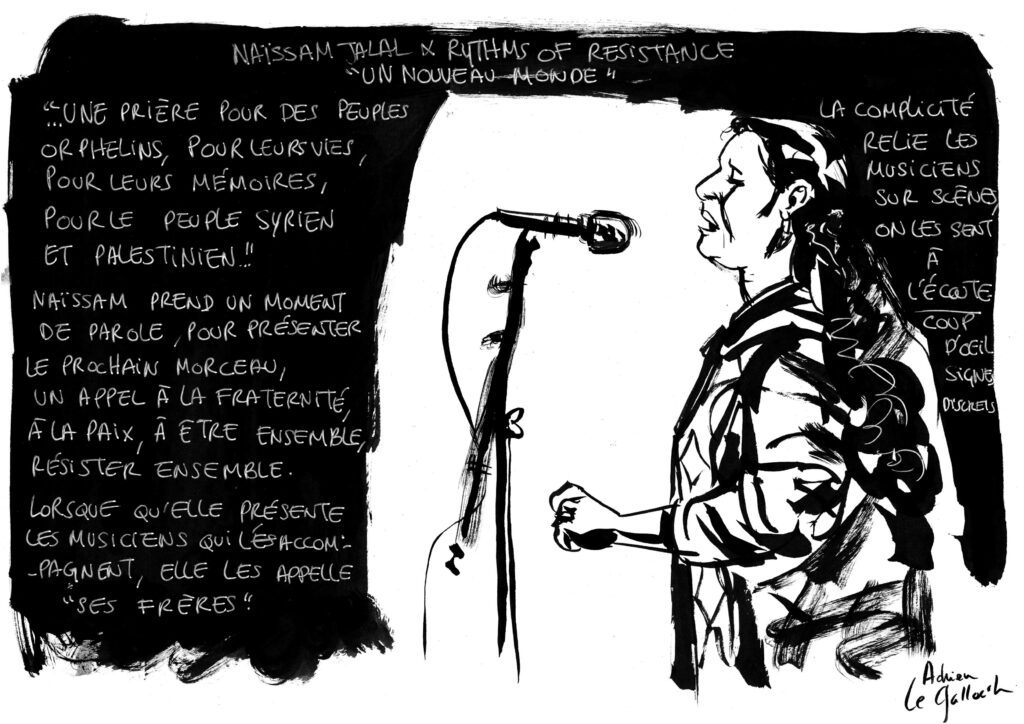 NAÏSSAM JALAL & RYTHMS OF RESISTANCE
"UN NOUVEAU MONDE"
"...UNE PRIÈRE POUR DES PEUPLES
ORPHELINS, POUR LEURS VIES,
POUR LEURS MÉMOIRES,
POUR LE PEUPLE SYRIEN
ET PALESTINIEN..."
NAÏSSAM PREND UN MOMENT
DE PAROLE, POUR PRÉSENTER
LE PROCHAIN MORCEAU,
UN APPEL À LA FRATERNITÉ,
À LA PAIX, À ETRE ENSEMBLE,
RÉSISTER ENSEMBLE.
LORSQUE QU'ELLE PRÉSENTE
LES MUSICIENS QUI L'ACCOM-
-PAGNENT, ELLE LES APPELLE
"SES FRÈRES"
LA COMPLICITÉ
RELIE LES
MUSICIENS
SUR SCÈNE,
ON LES SENT
À
L'ÉCOUTE
COUP
D'ŒIL
SIGNE
DISCRETS
Adrien
Le Galloc'h